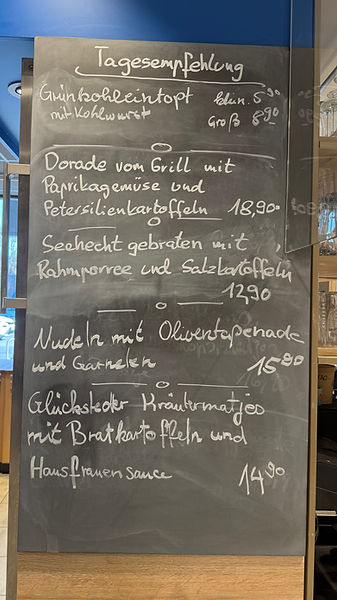 Tagesempfehlung
Grünkohleintopt klein. 5,90
mit Kohlwurst Groß 8,90
Dorade vom Grill mit
Paprikagemüse und
Petersilienkartoffeln 18,90
Seehecht gebraten mit
Rahmporree und Salzkartoffeln
12,90
Nudeln mit Oliventapenade
und Garnelen 15,90
Glückstedter Kräutermatjes
mit Bratkartoffeln und
Hausfrauensauce 14,90